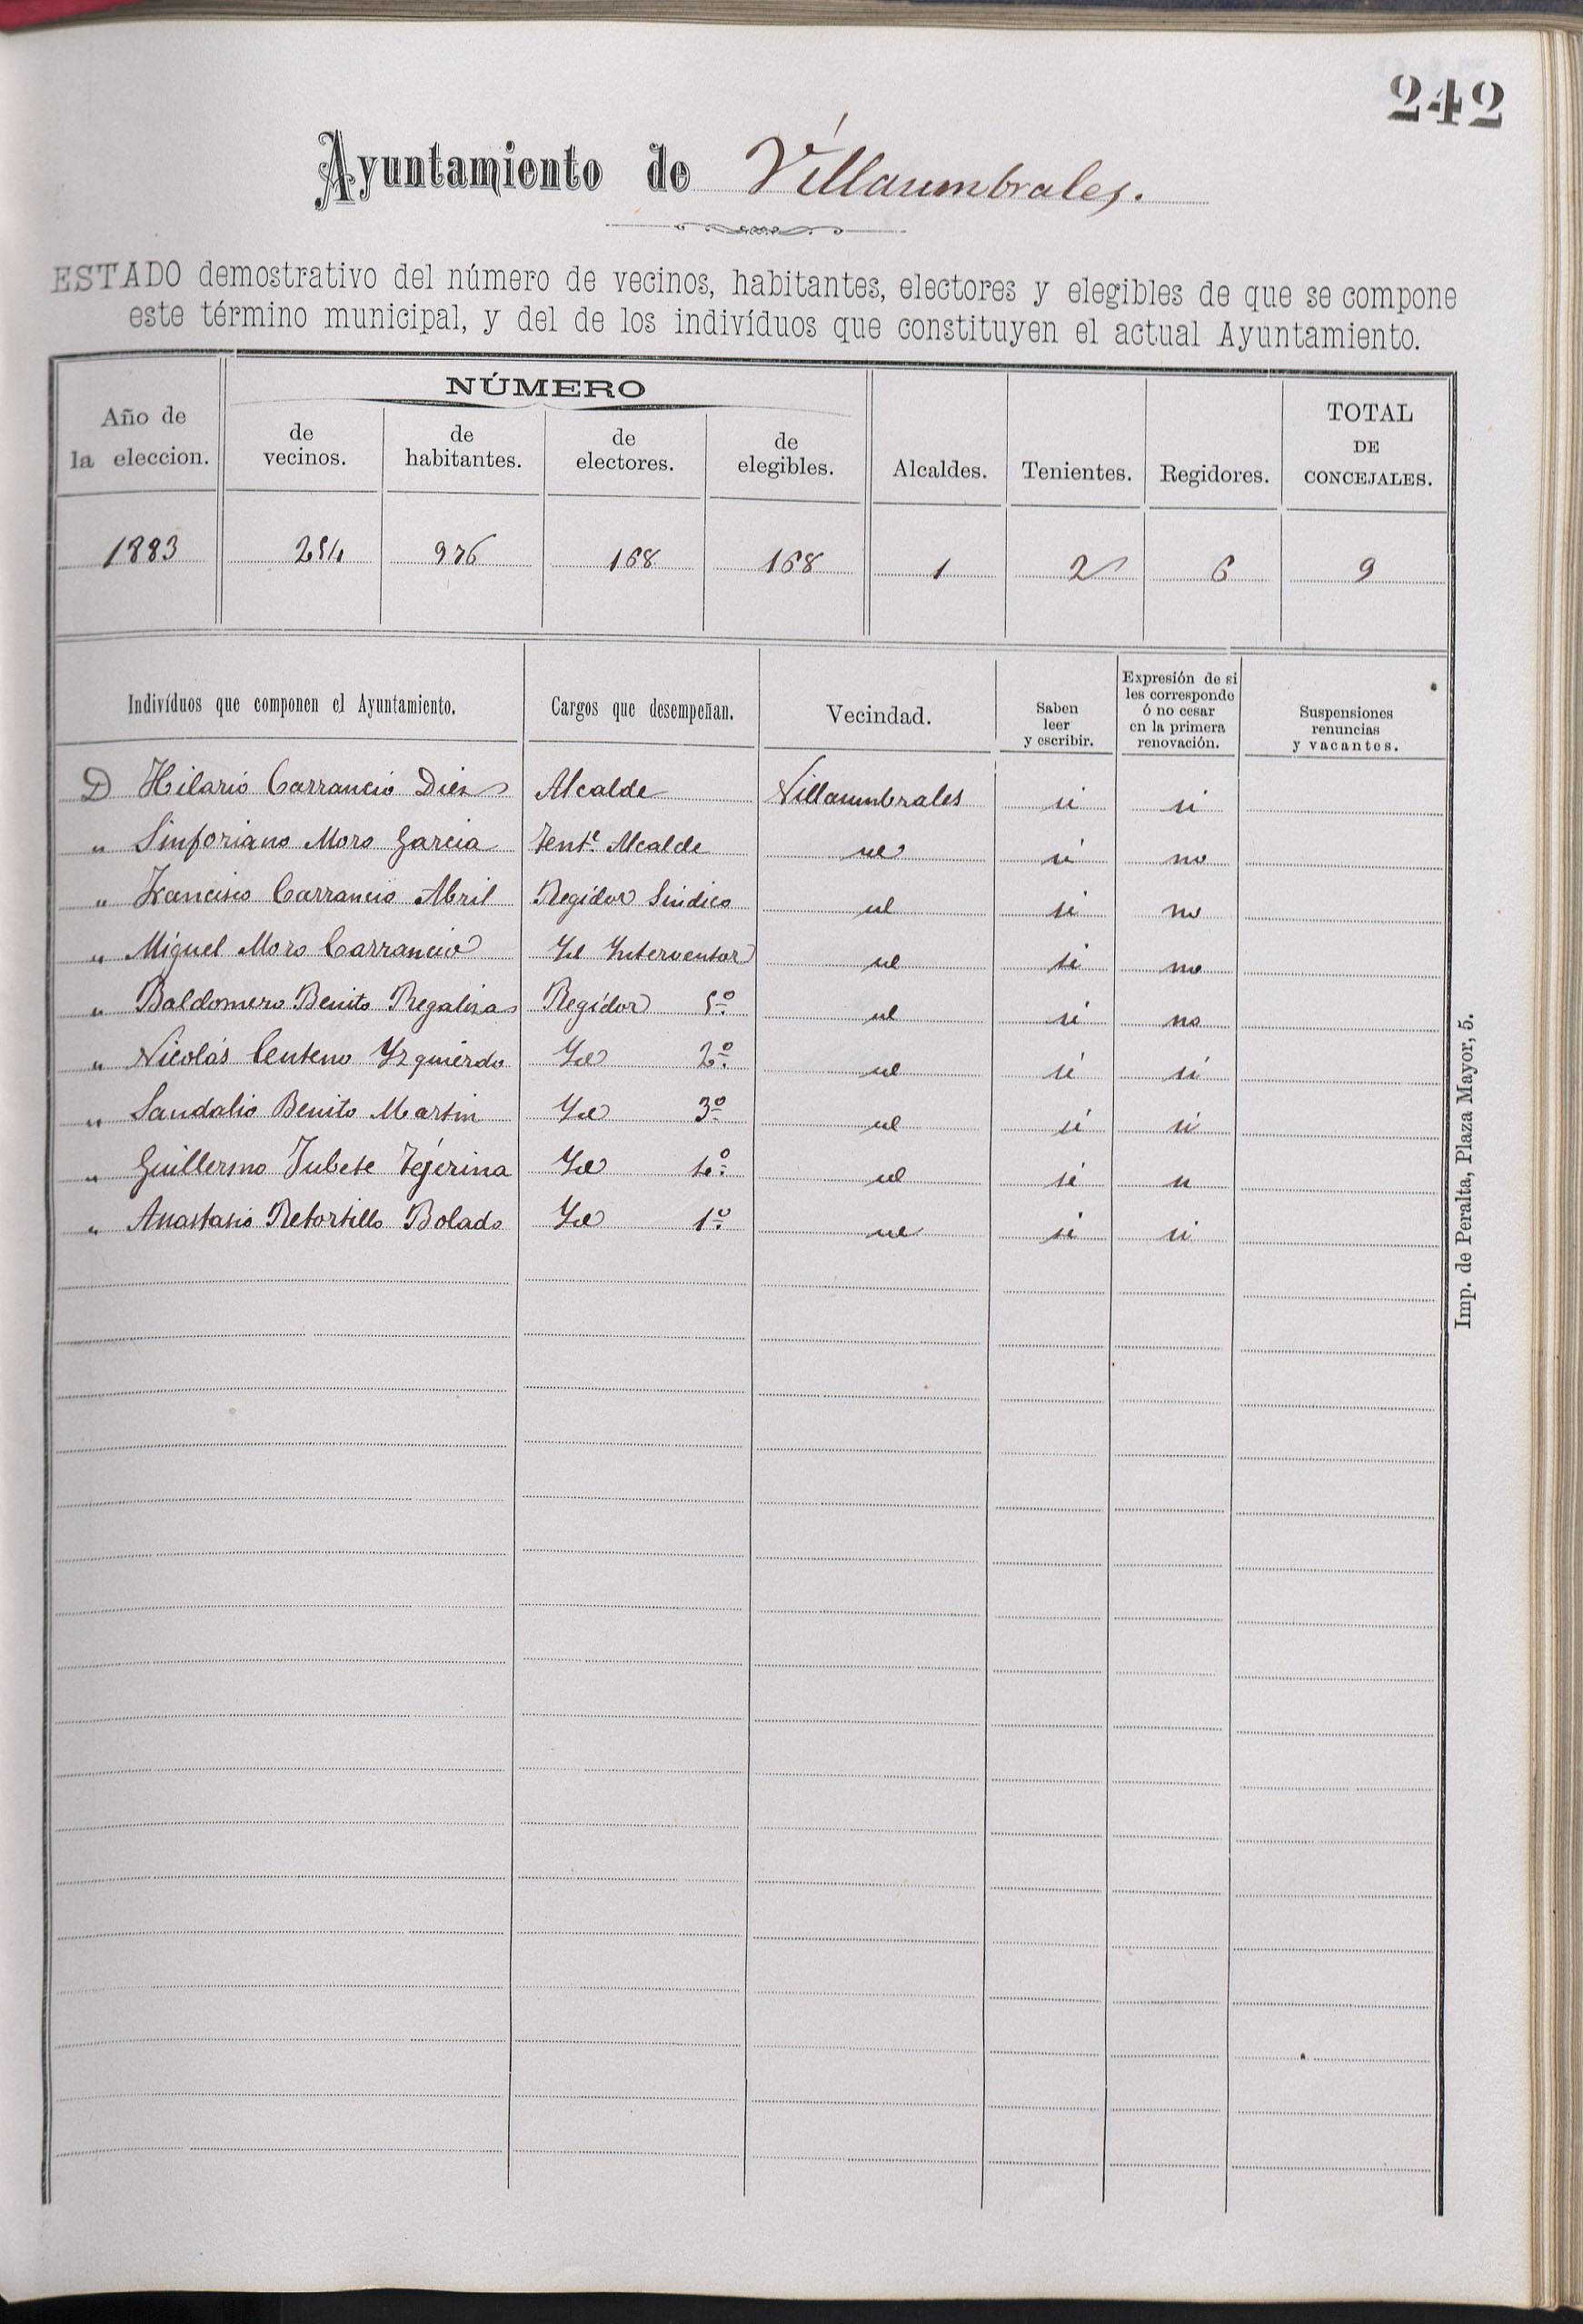 242
Ayuntamiento de Villaumbrales.
ESTADO demostrativo del número de vecinos, habitantes, electores y elegibles de que se compone
este término municipal, y del de los indivíduos que constituyen el actual Ayuntamiento.
NÚMERO
Año de la eleccion. de vecinos. de habitantes. de electores. de elegibles. Alcaldes. Tenientes. Regidores. TOTAL DE CONCEJALES.
1883 254 976 168 168 1 2 6 9
Indivíduos que componen el Ayuntamiento. Cargos que desempeñan. Vecindad. Saben leer y escribir. Expresión de si les corresponde ó no cesar en la primera renovación. Suspensiones renuncias y vacantes.
D Hilario Carrancio Diez Alcalde Villaumbrales si si
" Sinforiano Moro Garcia Tente Alcalde id si no
" Francisco Carrancio Abril Regidor Sindico id si no
" Miguel Moro Carrancio Yd Interventor id si no
" Baldomero Benito Regaliza Regidor 5º id si no
" Nicolás Centeno Yzquierdo Yd 2º id si si
" Sandalio Benito Martin Yd 3º id si si
" Guillermo Jubete Tejerina Yd 4º id si si
" Anastasio Retortillo Bolado Yd 1º id si si
Imp. de Peralta, Plaza Mayor, 5.